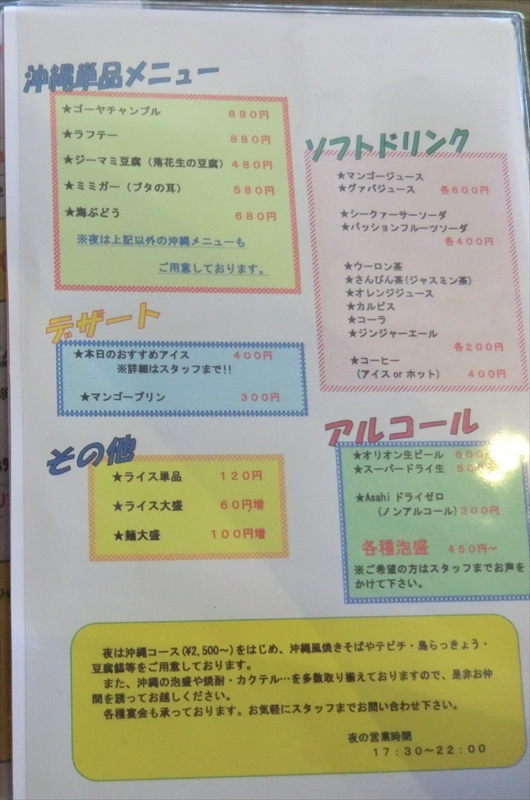 沖縄単品メニュー
★ゴーヤチャンプル 880円
★ラフテー 880円
★ジーマミ豆腐(落花生の豆腐) 480円
★ミミガー(ブタの耳) 580円
★海ぶどう 680円
※夜は上記以外の沖縄メニューも
ご用意しております。
デザート
★本日のおすすめアイス 400円
※詳細はスタッフまで!!
★マンゴープリン 300円
その他
★ライス単品 120円
★ライス大盛 60円増
★麺大盛 100円増
ソフトドリンク
★マンゴージュース
★グァバジュース 各600円
★シークァーサーソーダ
★パッションフルーツソーダ
各400円
★ウーロン茶
★さんぴん茶(ジャスミン茶)
★オレンジジュース
★カルピス
★コーラ
★ジンジャーエール
各200円
★コーヒー
(アイスorホット) 400円
アルコール
★オリオン生ビール
★スーパードライ生
★Asahiドライゼロ
(ノンアルコール)300円
各種泡盛 450円~
※ご希望の方はスタッフまでお声を
かけて下さい。
夜は沖縄コース(¥2,500~)をはじめ、沖縄風焼きそばやテビチ・島らっきょう・
豆腐餻等をご用意しております。
また、沖縄の泡盛や焼酎・カクテル…を多数取り揃えておりますので、是非お仲
間を誘ってお越しください。
各種宴会も承っております。お気軽にスタッフまでお問い合わせ下さい。
夜の営業時間
17:30~22:00